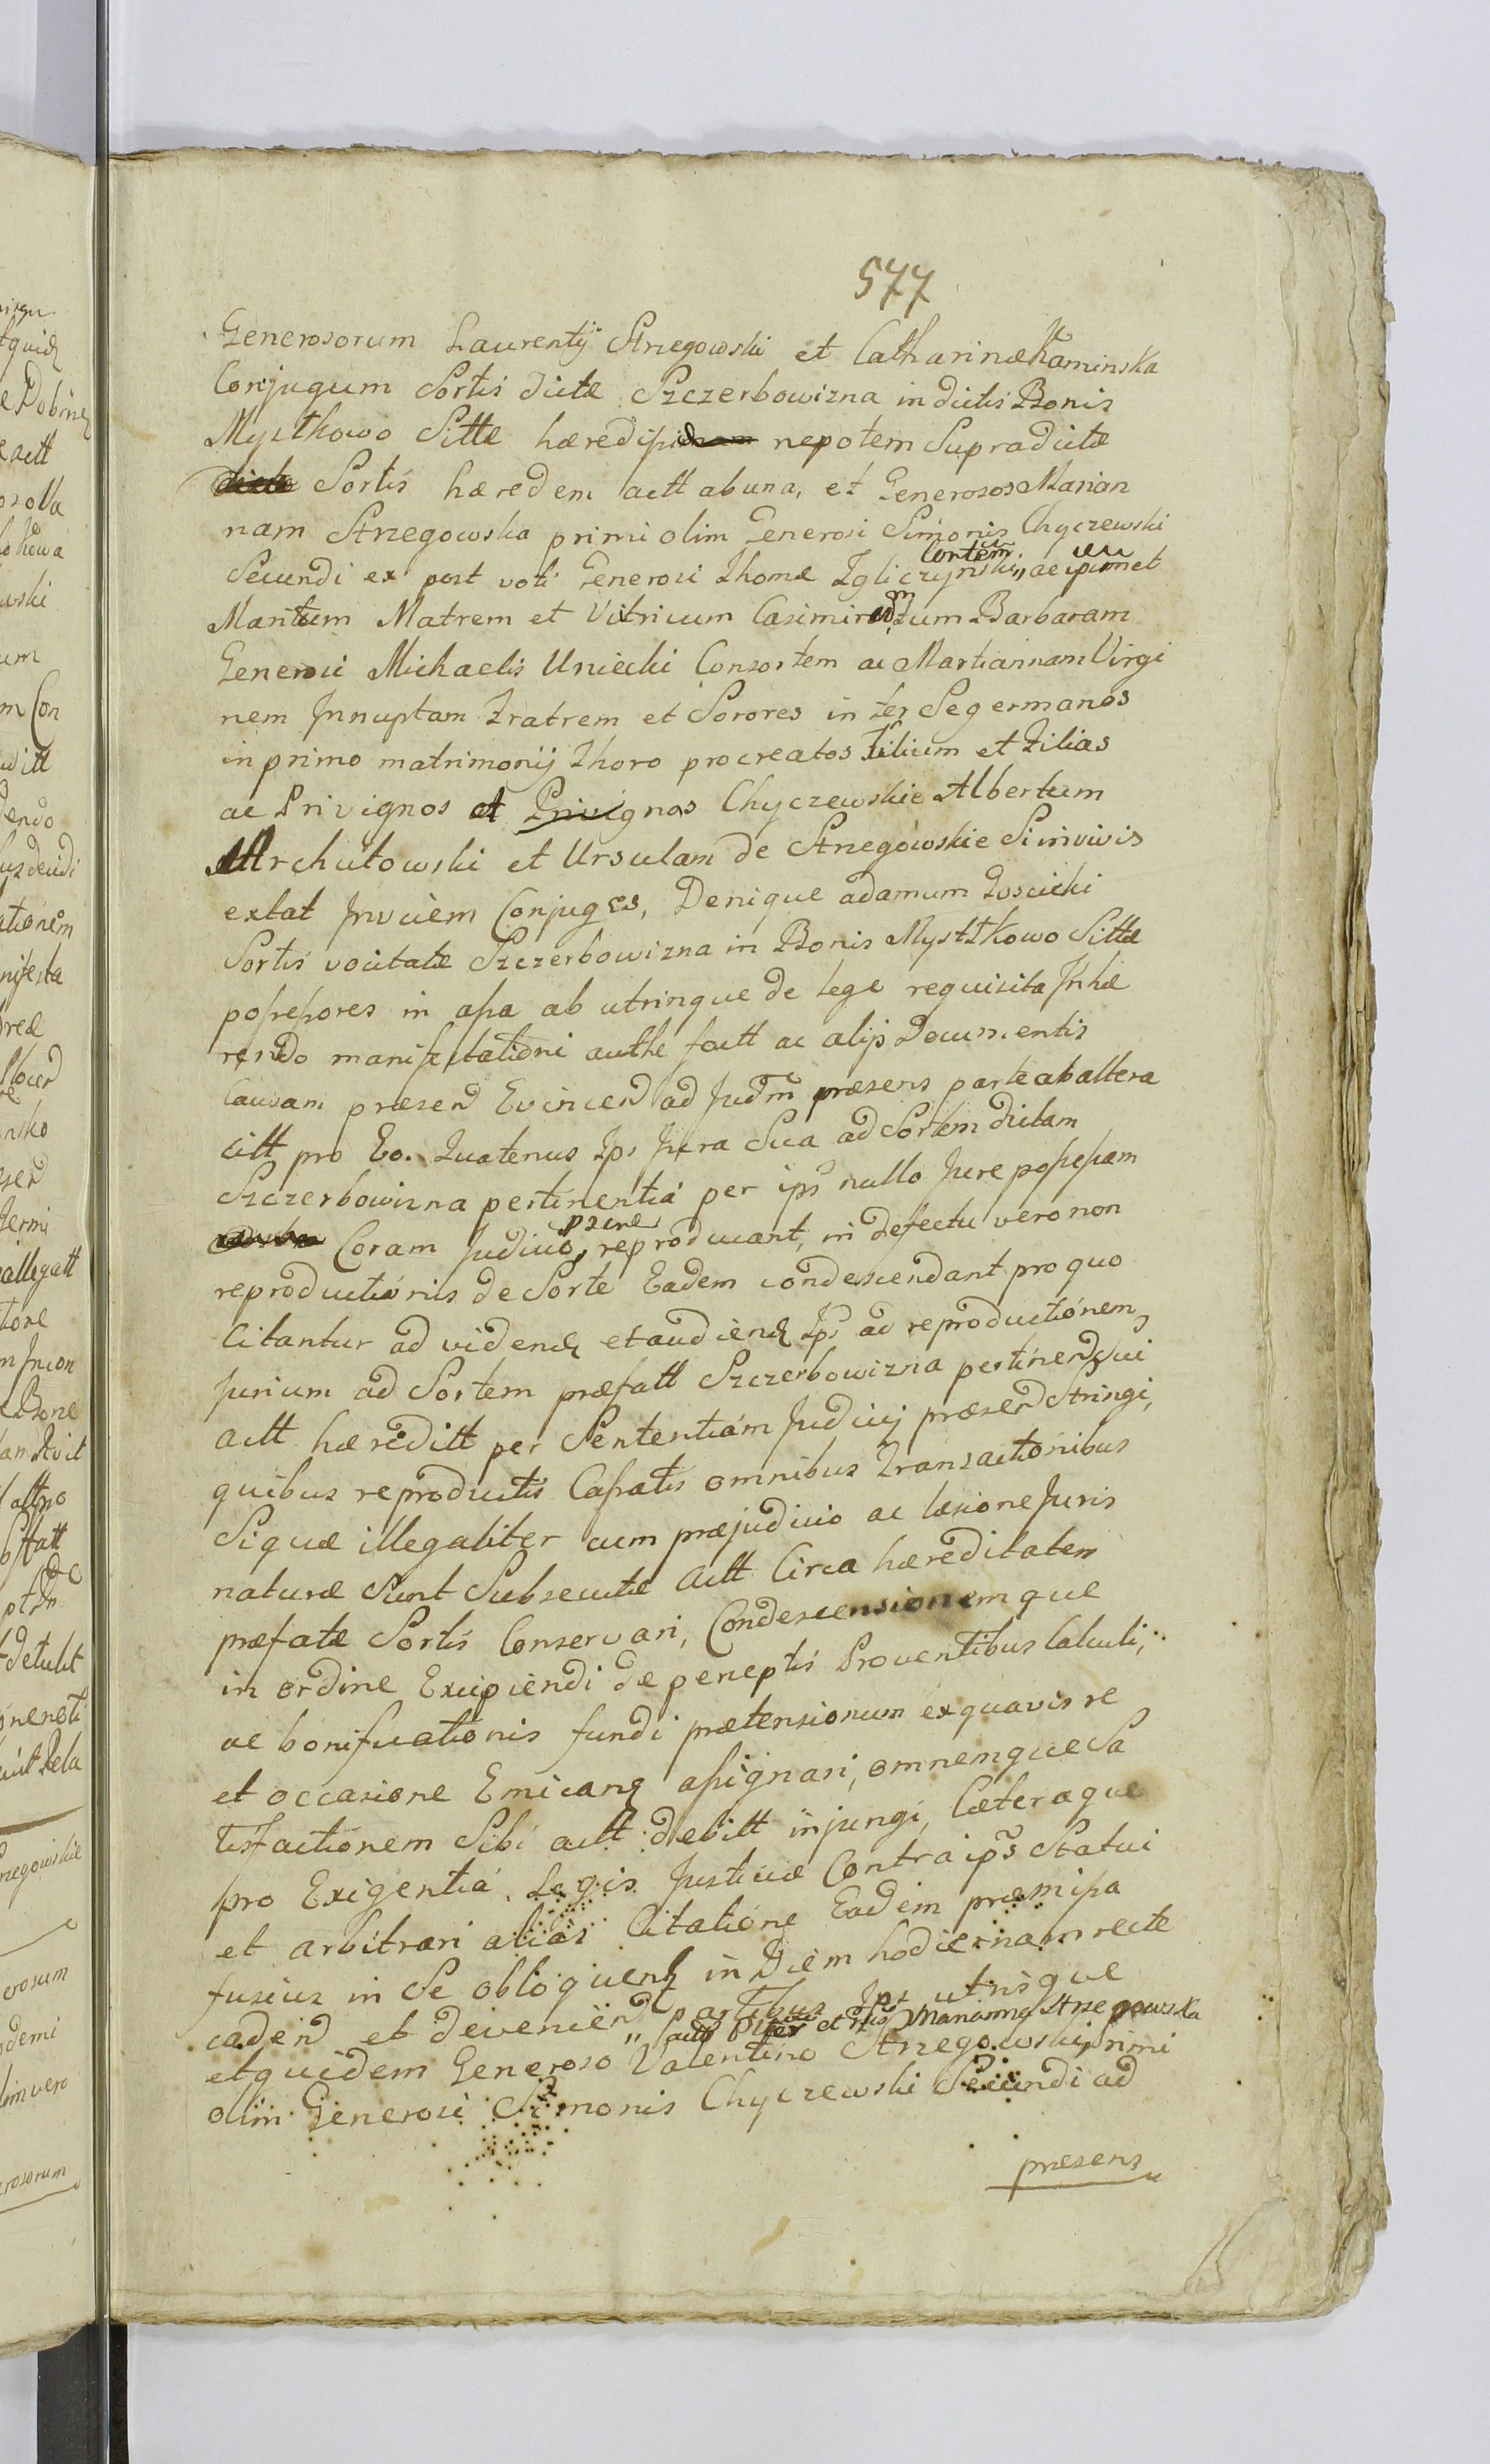 577
Generosorum Laurentij Strzegowski et Catharinæ Kaminska
Conjugum Sortis dictæ Szczerbowizna in dictis Bonis
Mystkowo Sittæ hæredis nepotem Supradictæ
Sortis hæredem actt ab una, et Generosos Marian
nam Strzegowska primi olim Generosi Simonis Chyczewski
Secundi ex post voti Generosi Thomæ Zgliczynski Consortem, ac
Maritum Matrem et Vitricum Casimirum Barbaram
Generosi Michaelis Uniecki Consortem ac Martiannam Virgi
nem Innuptam Fratrem et Sorores inter Se germanos
in primo matrimonij Thoro procreatos Filium et Filias
ac Privignos et Privignas Chyczewskie Albertum
Mrchutowski et Ursulam de Strzegowskie Si in vivis
extat Invicem Conjuges, Denique adamum Goscicki
Sortis vocitatæ Szczerbowizna in Bonis Mystkowo Sittæ
possessores in assa ab utrinque de lege requisita Inhæ
rendo manifestationi authe factt ac alijs Documentis
Causam præsend Evincend ad Judm præsens parte ab altera
citt pro Eo. Quatenus Ips Jura Sua ad Sortem dictam
Szczerbowizna pertinentia per ips nullo Jure possessam
Coram Judicio psene reproducant, in defectu vero non
reproductionis de Sorte Eadem condescendant pro quo
Citantur ad videndq et audiendq Ips ad reproductionem
Jurium ad Sortem præfatt Szczerbowizna pertinend Sui
actt hæreditt per Sententiam Judicij præsend Stringi,
quibus reproductis Cassatis omnibus Transactionibus
Siquæ illegaliter cum præjudicio ac læsione Juris
naturæ Sunt Subsecutæ actt Circa hæreditatem
præfatæ Sortis Conservari, Condescensionemque
in ordine Excipiendi de perceptis Proventibus Calculi,
ac bonificationis fundi prætensionum ex quavis re
et occasione Emicanq assignari, omnemque Sa
tisfactionem Sibi actt debitt injungi, Cæteraque
pro Exigentia Legis Justitiæ Contra ips Statui
et arbitrari alias Citatione Eadem præmissa
fusius in Se obloquenq in Diem hodiernam recte
cadend et deveniend partibus Ips utrisque
et quidem Generoso Valentino Strzegowski et Marianna Strzegowska primi
olim Generosi Simonis Chyczewski Secundi ad
præsens